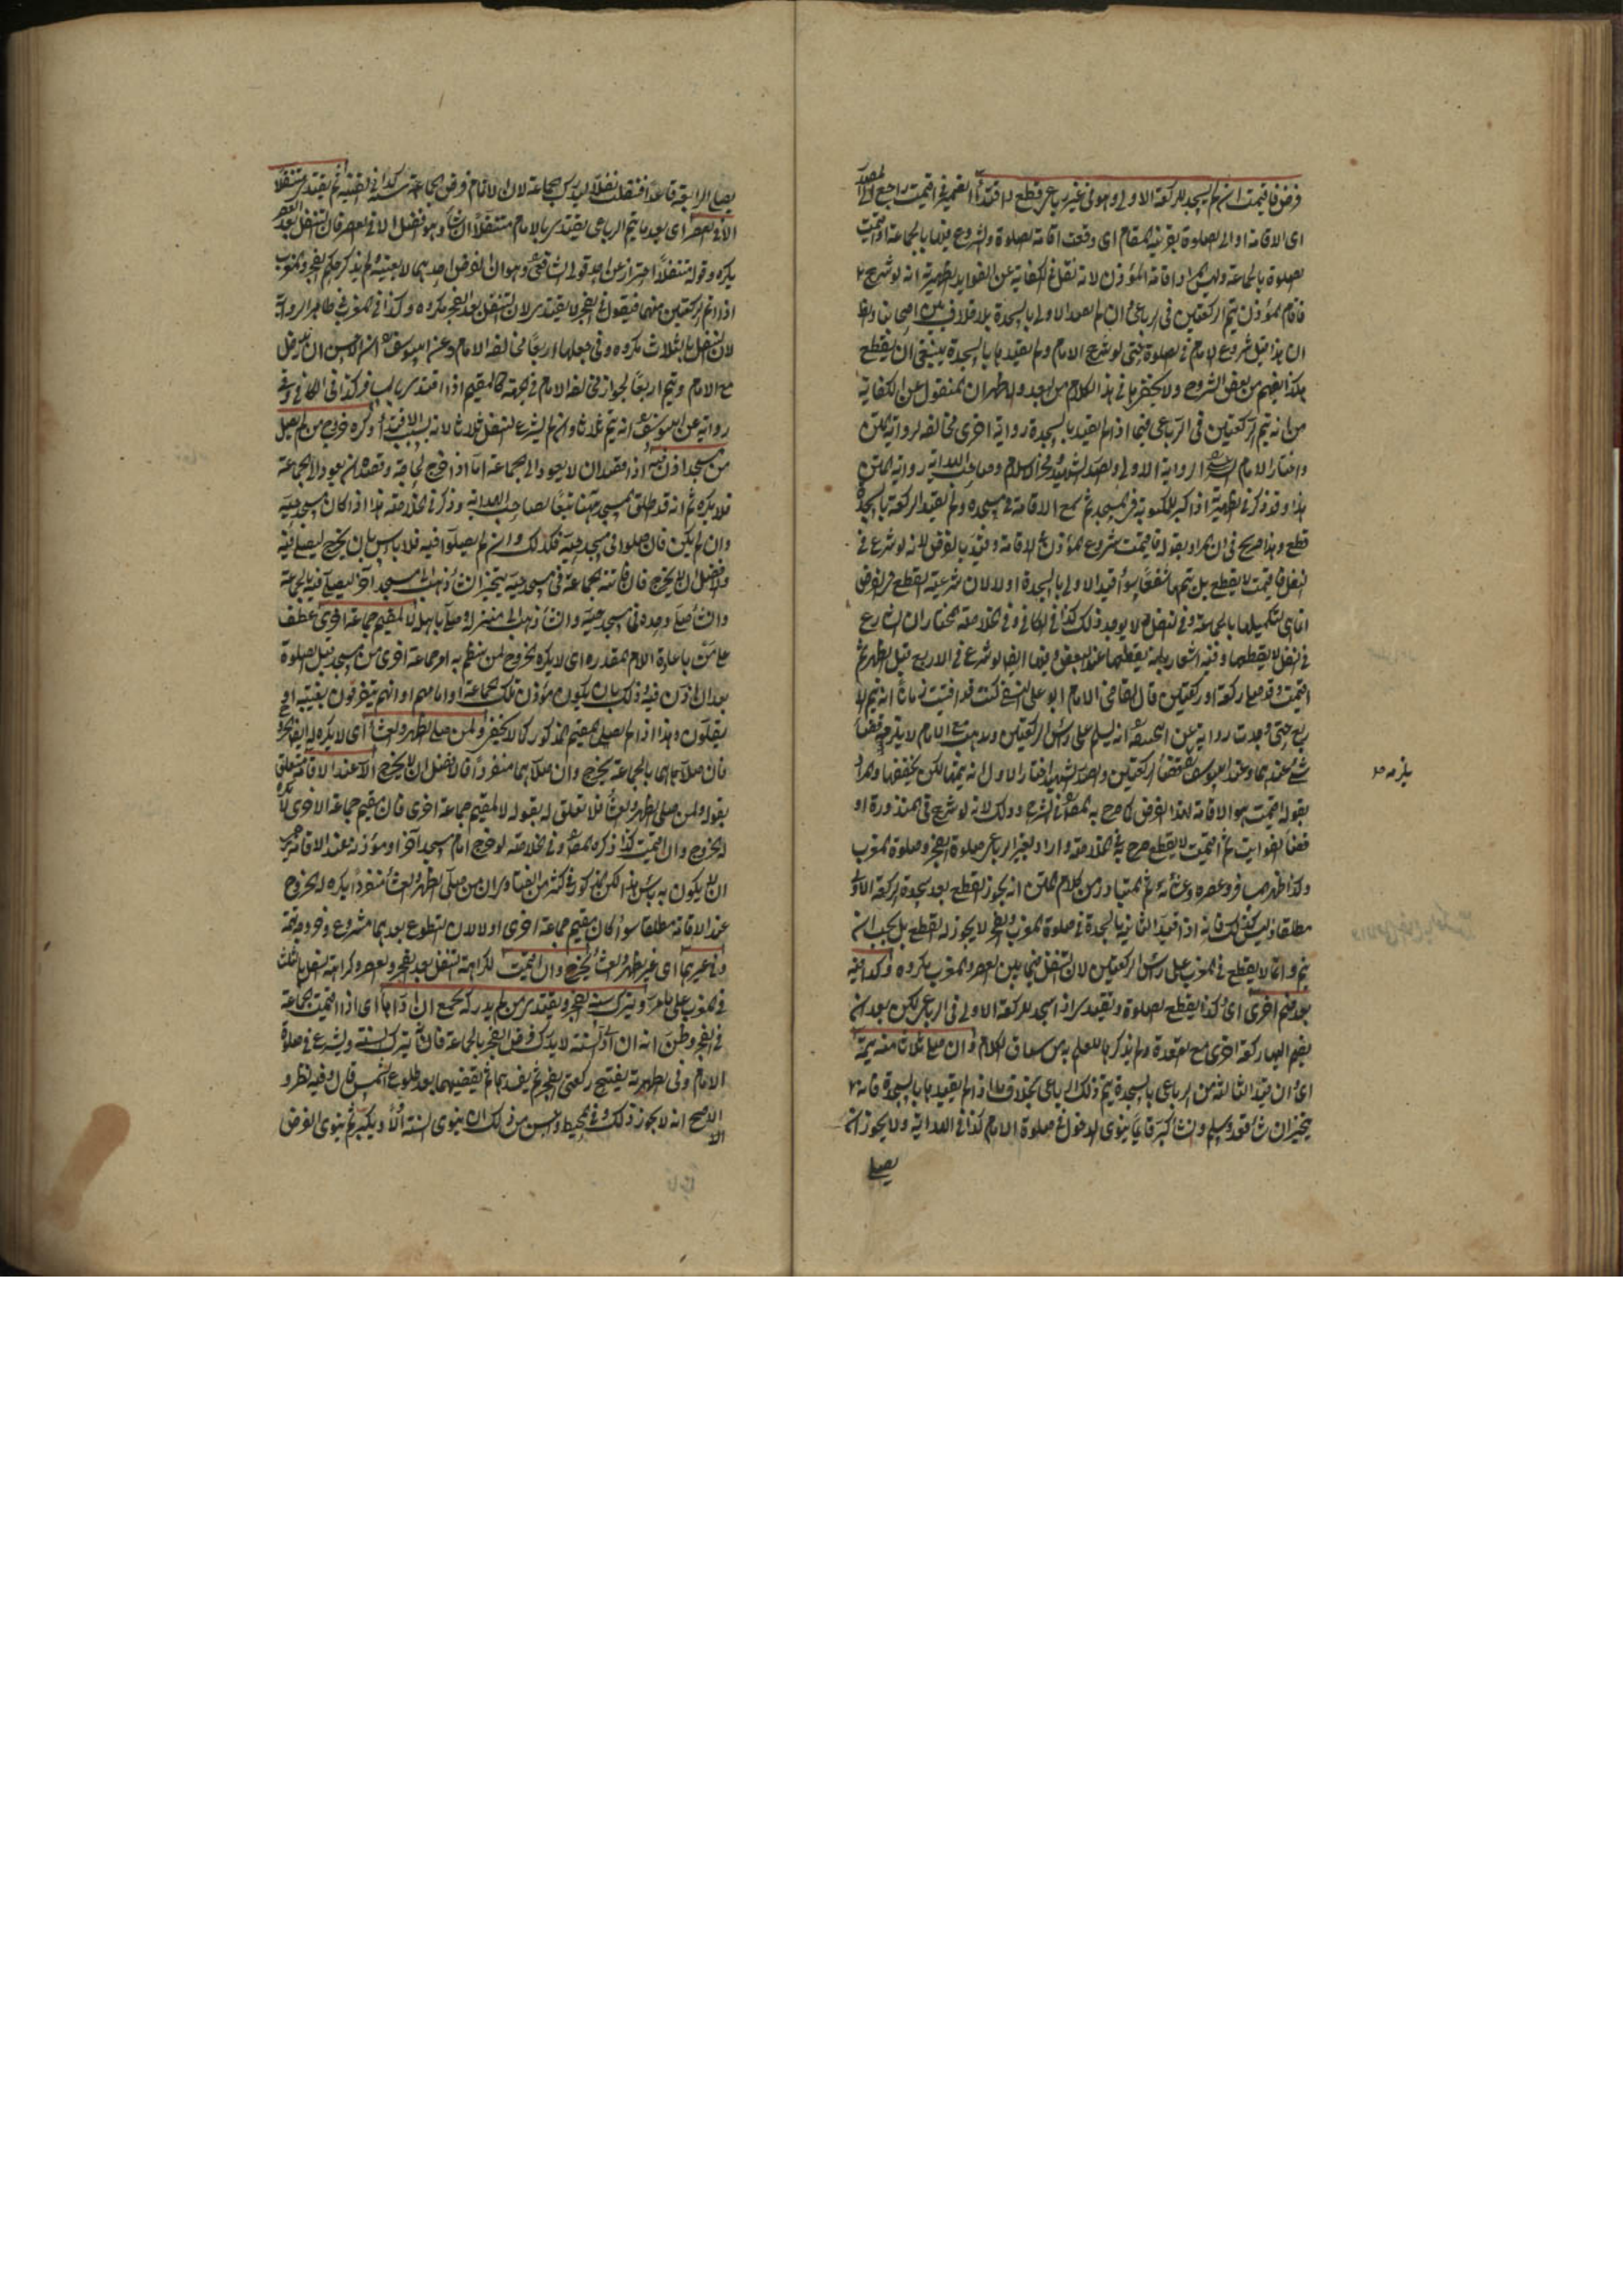 فرض فاقيمت ان لم يسجد للركعة الاولى وهو في غير رباعي قطع واقتدى الضمير في اقيمت راجع الى
اى الاقامة او الى الصلوة بقرينة المقام اى وقعت اقامة الصلوة والشروع فيها بالجماعة او اقيمت
الصلوة بالجماعة وليس المراد اقامة المؤذن لانه نقل في الكفاية عن الفوايد الظهيرية انه لو شرع
فاقام المؤذن يتم الركعتين في الرباعى وان لم يقيد الاولى بالسجدة بلا خلاف بين اصحابنا
ان هذا قبل شروع الامام في الصلوة حتى لو شرع الامام ولم يقيدها بالسجدة ينبغى ان يقطع
هكذا يفهم من بعض الشروح ولا يخفى ما في هذا الكلام من البعد والظاهر ان المنقول عن الكفاية
من انه يتم الركعتين في الرباعى فيما اذا لم يقيد بالسجدة رواية اخرى مخالفة لرواية المتن
واختار الامام الرواية الاولى والصدر الشهيد وفخر الاسلام وصاحب الهداية رواية المتن
هذا وقد ذكر في الظهيرية اذا كبر للمكتوبة في المسجد ثم سمع الاقامة في مسجده ولم يقيد الركعة بالسجدة
قطع وهذا صريح في ان المراد بقوله فاقيمت شروع المؤذن في الاقامة وقيد بالفرض لانه لو شرع في
النفل فاقيمت لا يقطع بل يتمها شفعا سواء قيد الاولى بالسجدة او لا لان شرعية القطع في الفرض
انما هى لتكميلها بالجماعة وفي النفل لا يوجد ذلك كذا في الكافي وفي الخلاصة المختار ان الشارع
في النفل لا يقطعها وفيه اشعار بانه يقطعها عند البعض وفيها ايضا لو شرع في الاربع قبل الظهر ثم
اقيمت وقد صلى ركعة او ركعتين قال القاضى الامام ابو على النسفى كنت قد افتيت زمانا انه يتم
ربع حتى وجدت رواية عن ابى حنيفة انه يسلم على رأس الركعتين ولا يلزمه قضاء
شئ عندهما وعند ابى يوسف يقضى ركعتين والصدر الشهيد اختار الاول انه يتمها لكن يخففها والمراد
بقوله اقيمت هو الاقامة لهذا الفرض كما صرح به وذلك لانه لو شرع في المنذورة او
قضاء الفوايت ثم اقيمت لا يقطع صرح به في الخلاصة واراد بغير الرباعى صلوة الفجر وصلوة المغرب
وكذا ظهر المسافر وعصره وعشائه ثم المتبادر من كلام المتن انه يجوز القطع بعد سجدة الركعة الاولى
مطلقا وليس كذلك فانه اذا قيد الثانية بالسجدة في صلوة المغرب والفجر لا يجوز له القطع بل يجب ان
يتم وانما لا يقطع في المغرب على رأس الركعتين لان التنفل فيما بين العصر والمغرب مكروه وكذا فيه
بعد ضم اخرى اى وكذا يقطع الصلوة ويقتدى اذا سجد للركعة الاولى في الرباعى لكن بعد ان
يضم اليها ركعة اخرى مع القعدة ولم يذكرها للعلم به من سياق الكلام وان صلى ثلاثا منه يتمه
اى وان قيد الثالثة من الرباعى بالسجدة يتم ذلك الرباعى بخلاف ما اذا لم يقيدها بالسجدة فانه
يتخير ان شاء قعد وسلم وان شاء كبر قايما ينوى الدخول في صلوة الامام كذا في الهداية ولا يجوز ان
يصلى
يلزمه صح
يصلى الرابعة قاعدا فتنقلب نفلا لان الاتمام فرض والجماعة سنة كذا في القنية ثم يقتدى متنفلا
الا في العصر اى بعد ما يتم الرباعى يقتدى بالامام متنفلا ان شاء وهو افضل الا في العصر فان التنفل بعد العصر
يكره وقوله متنفلا احتراز عن احد قولى الشافعى وهو ان الفرض احدهما لا بعينه ولم يذكر حكم الفجر والمغرب
اذا اتم الركعتين منهما فيقول في الفجر لا يقتدى لان التنفل بعد الفجر مكروه وكذا في المغرب في ظاهر الرواية
لان التنفل بالثلاث مكروه وفي جعلها اربعا مخالفة الامام وعن ابى يوسف ان الاحسن ان يدخل
مع الامام ويتم اربعا لجواز مخالفة الامام في كالمقيم اذا اقتدى بالمسافر كذا في الكافي وفي
رواية عن ابى يوسف انه يتم ثلاثا وان لم يشرع التنفل ثلاثا لانه بسبب الاقتداء وكره خروج من لم يصل
من مسجد اذن فيه اذا قصد ان لا يعود الى الجماعة اما اذا خرج لحاجة وقصده ان يعود الى الجماعة
فلا يكره ثم انه قد طلق المسجد ههنا تبعا لصاحب الهداية وذكر في الخلاصة هذا اذا كان مسجد حيه
وان لم يكن فان صلوا في مسجد حيه فكذلك وان لم يصلوا فيه فلا بأس بان يخرج ليصلى فيه
والافضل ان لا يخرج فان فاتته الجماعة في مسجد حيه يتخير ان شاء ذهب الى مسجد آخر ليصلى فيه بالجماعة
وان شاء صلى وحده في مسجد حيه وان شاء ذهب الى منزله وصلى باهله لا لمقيم جماعة اخرى عطف
على من باعادة اللام المقدرة اى لا يكره الخروج لمن ينتظم به امر جماعة اخرى من مسجد قبل الصلوة
بعد ان اذن فيه وذلك بان يكون مؤذن تلك الجماعة او امامهم او انهم يتفرقون بغيبته او
يقلون وهذا اذا لم يصل المقيم المذكور كما لا يخفى ولمن صلى الظهر والعشاء اى لا يكره له ايضا الخروج
فان صلاهما بالجماعة يخرج وان صلاهما منفردا فالافضل ان لا يخرج الا عند الاقامة متعلق
بقوله ولمن صلى الظهر والعشاء فلا تعلق له بقوله لا لمقيم جماعة اخرى فان مقيم جماعة الاخرى لا يكره
له الخروج وان اقيمت كذا ذكره المص وفي الخلاصة لو خرج امام مسجد آخر او مؤذنه عند الاقامة
ان لا يكون به بأس هذا لكن المذكور في كثير من الفتاوى ان من صلى الظهر والعشاء منفردا يكره له الخروج
عند الاقامة مطلقا سواء كان مقيم جماعة اخرى او لا لان التطوع بعدهما مشروع وخروجه تهمة
وفي غيرهما اى غير الظهر والعشاء يخرج وان اقيمت لكراهة التنفل بعد الفجر والعصر وكراهة التنفل بالثلاث
في المغرب على ما مر ويترك سنة الفجر ويقتدى من لم يدركه بجمع ان اداها اى اذا اقيمت الجماعة
في الفجر وظن انه ان ادى السنة لا يدرك فرض الفجر بالجماعة فانه يترك السنة ويشرع في صلوة
الامام وفي الظهيرية يفتتح ركعتى الفجر ثم يفسدهما ثم يقضيهما بعد طلوع الشمس قال وفيه نظر و
الاصح انه لا يجوز ذلك وفي المحيط واحسن من ذلك ان ينوى السنة اولا ويكبر ثم ينوى الفرض